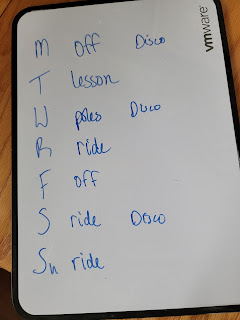 M off Disco
T lesson
W poles Disco
R ride
F off
S ride Disco
Sn ride
vmware